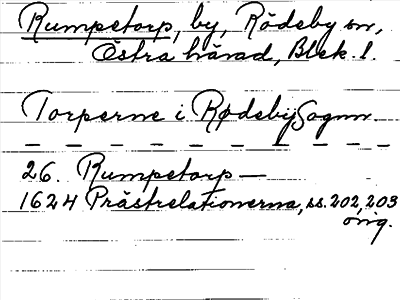 Rumpetorp, by, Rödeby sn,
Östra härad, Blek. l.
Torperne i Rødeby Sognn.
— — — — — — — — — —
26. Rumpetorp —
1624 Prästrelationerna, ss. 202, 203
orig.